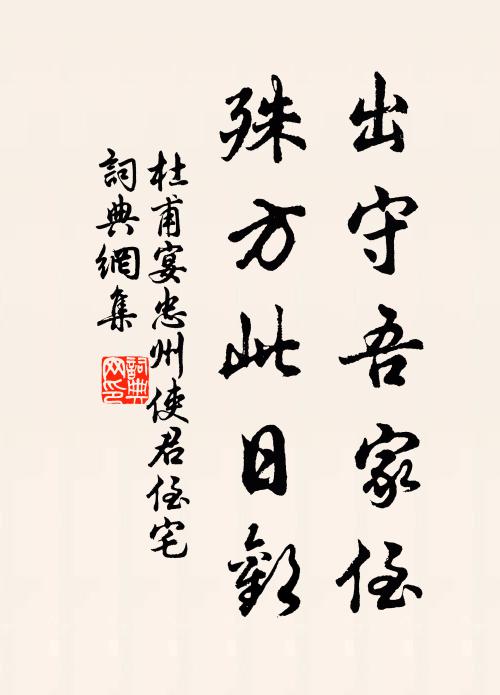 出守吾家侄
殊方此日歡
杜甫宴忠州使君侄宅
詞典網集
詞典
网印